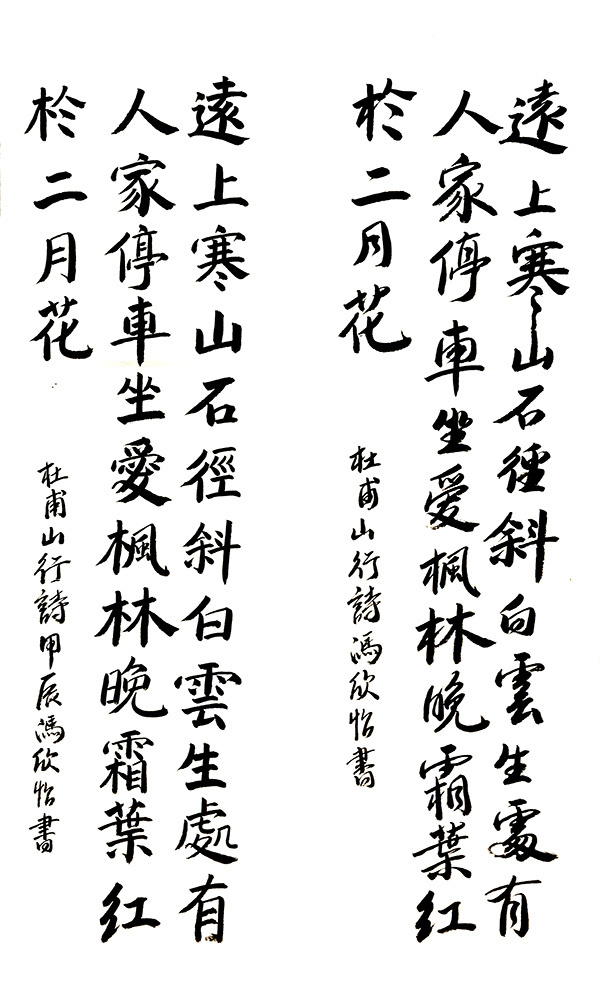 遠上寒山石徑斜白雲生處有
人家停車坐愛楓林晚霜葉红
於二月花
杜甫山行詩馮欣怡書
遠上寒山石徑斜白雲生處有
人家停車坐愛楓林晚霜葉红
於二月花
杜甫山行詩甲辰馮欣怡書